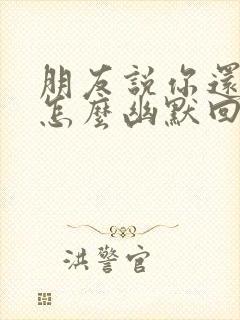 朋友說你還
怎麼幽默回
洪警官